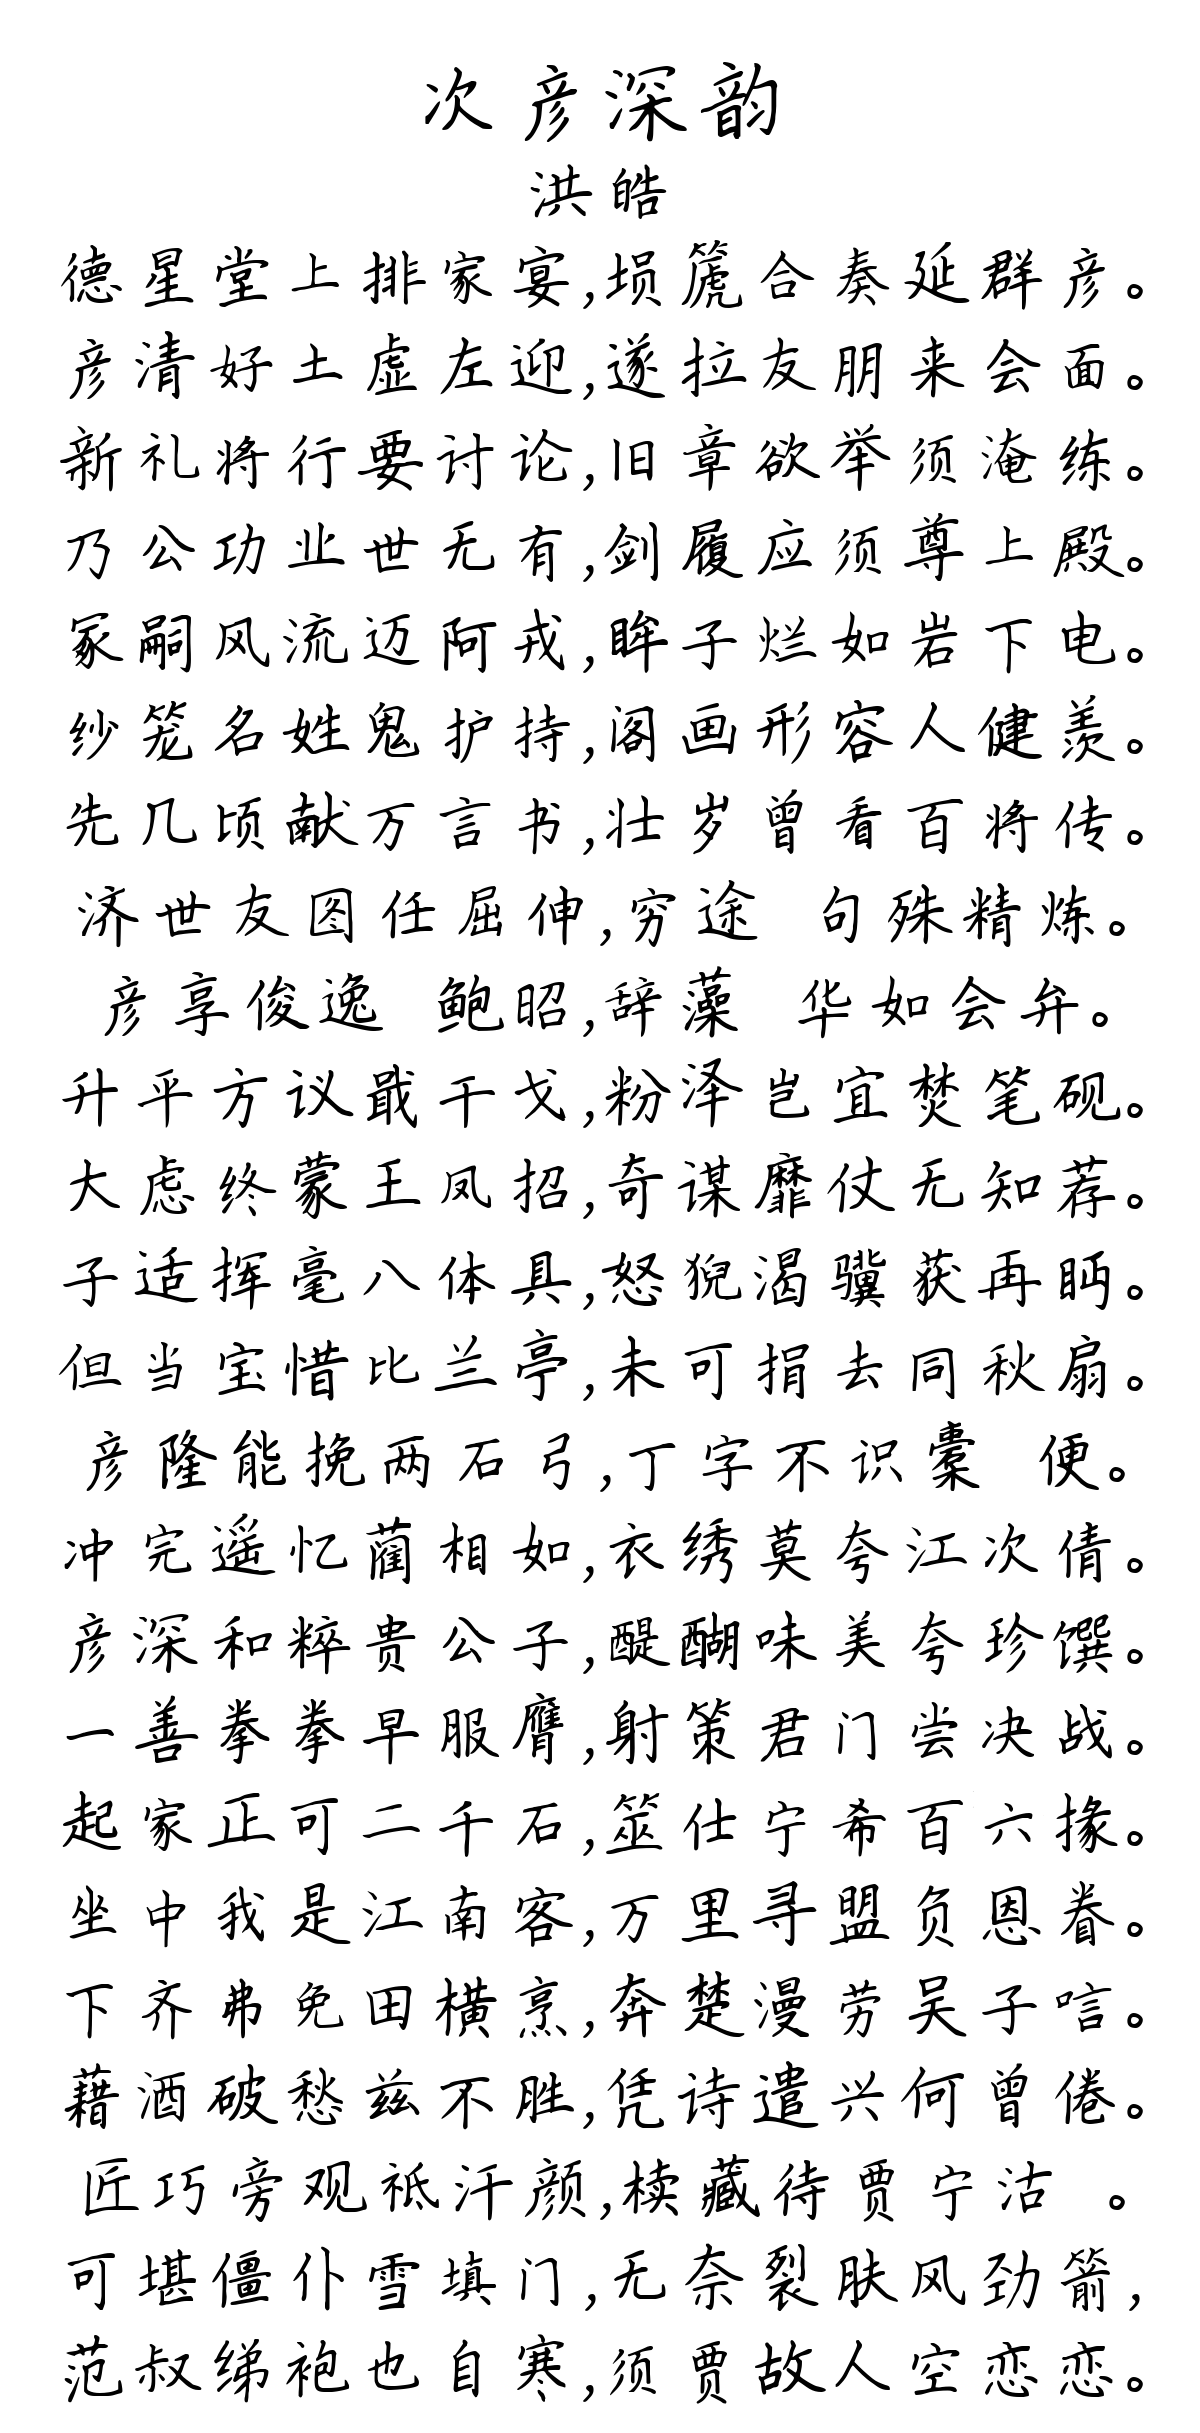 次彦深韵
洪皓
德星堂上排家宴,埙篪合奏延群彦。
彦清好士虚左迎,遂拉友朋来会面。
新礼将行要讨论,旧章欲举须淹练。
乃公功业世无有,剑履应须尊上殿。
冢嗣风流迈阿戎,眸子烂如岩下电。
纱笼名姓鬼护持,阁画形容人健羡。
先几顷献万言书,壮岁曾看百将传。
济世友图任屈伸,穷途 句殊精炼。
彦享俊逸 鲍昭,辞藻 华如会弁。
升平方议戢干戈,粉泽岂宜焚笔砚。
大虑终蒙王凤招,奇谋靡仗无知荐。
子适挥毫八体具,怒猊渴骥获再眄。
但当宝惜比兰亭,未可捐去同秋扇。
彦隆能挽两石弓,丁字不识橐 便。
冲完遥忆蔺相如,衣绣莫夸江次倩。
彦深和粹贵公子,醍醐味美夸珍馔。
一善拳拳早服膺,射策君门尝决战。
起家正可二千石,筮仕宁希百六掾。
坐中我是江南客,万里寻盟负恩眷。
下齐弗免田横烹,奔楚漫劳吴子唁。
藉酒破愁兹不胜,凭诗遣兴何曾倦。
匠巧旁观祗汗颜,椟藏待贾宁沽 。
可堪僵仆雪填门,无奈裂肤风劲箭,
范叔绨袍也自寒,须贾故人空恋恋。